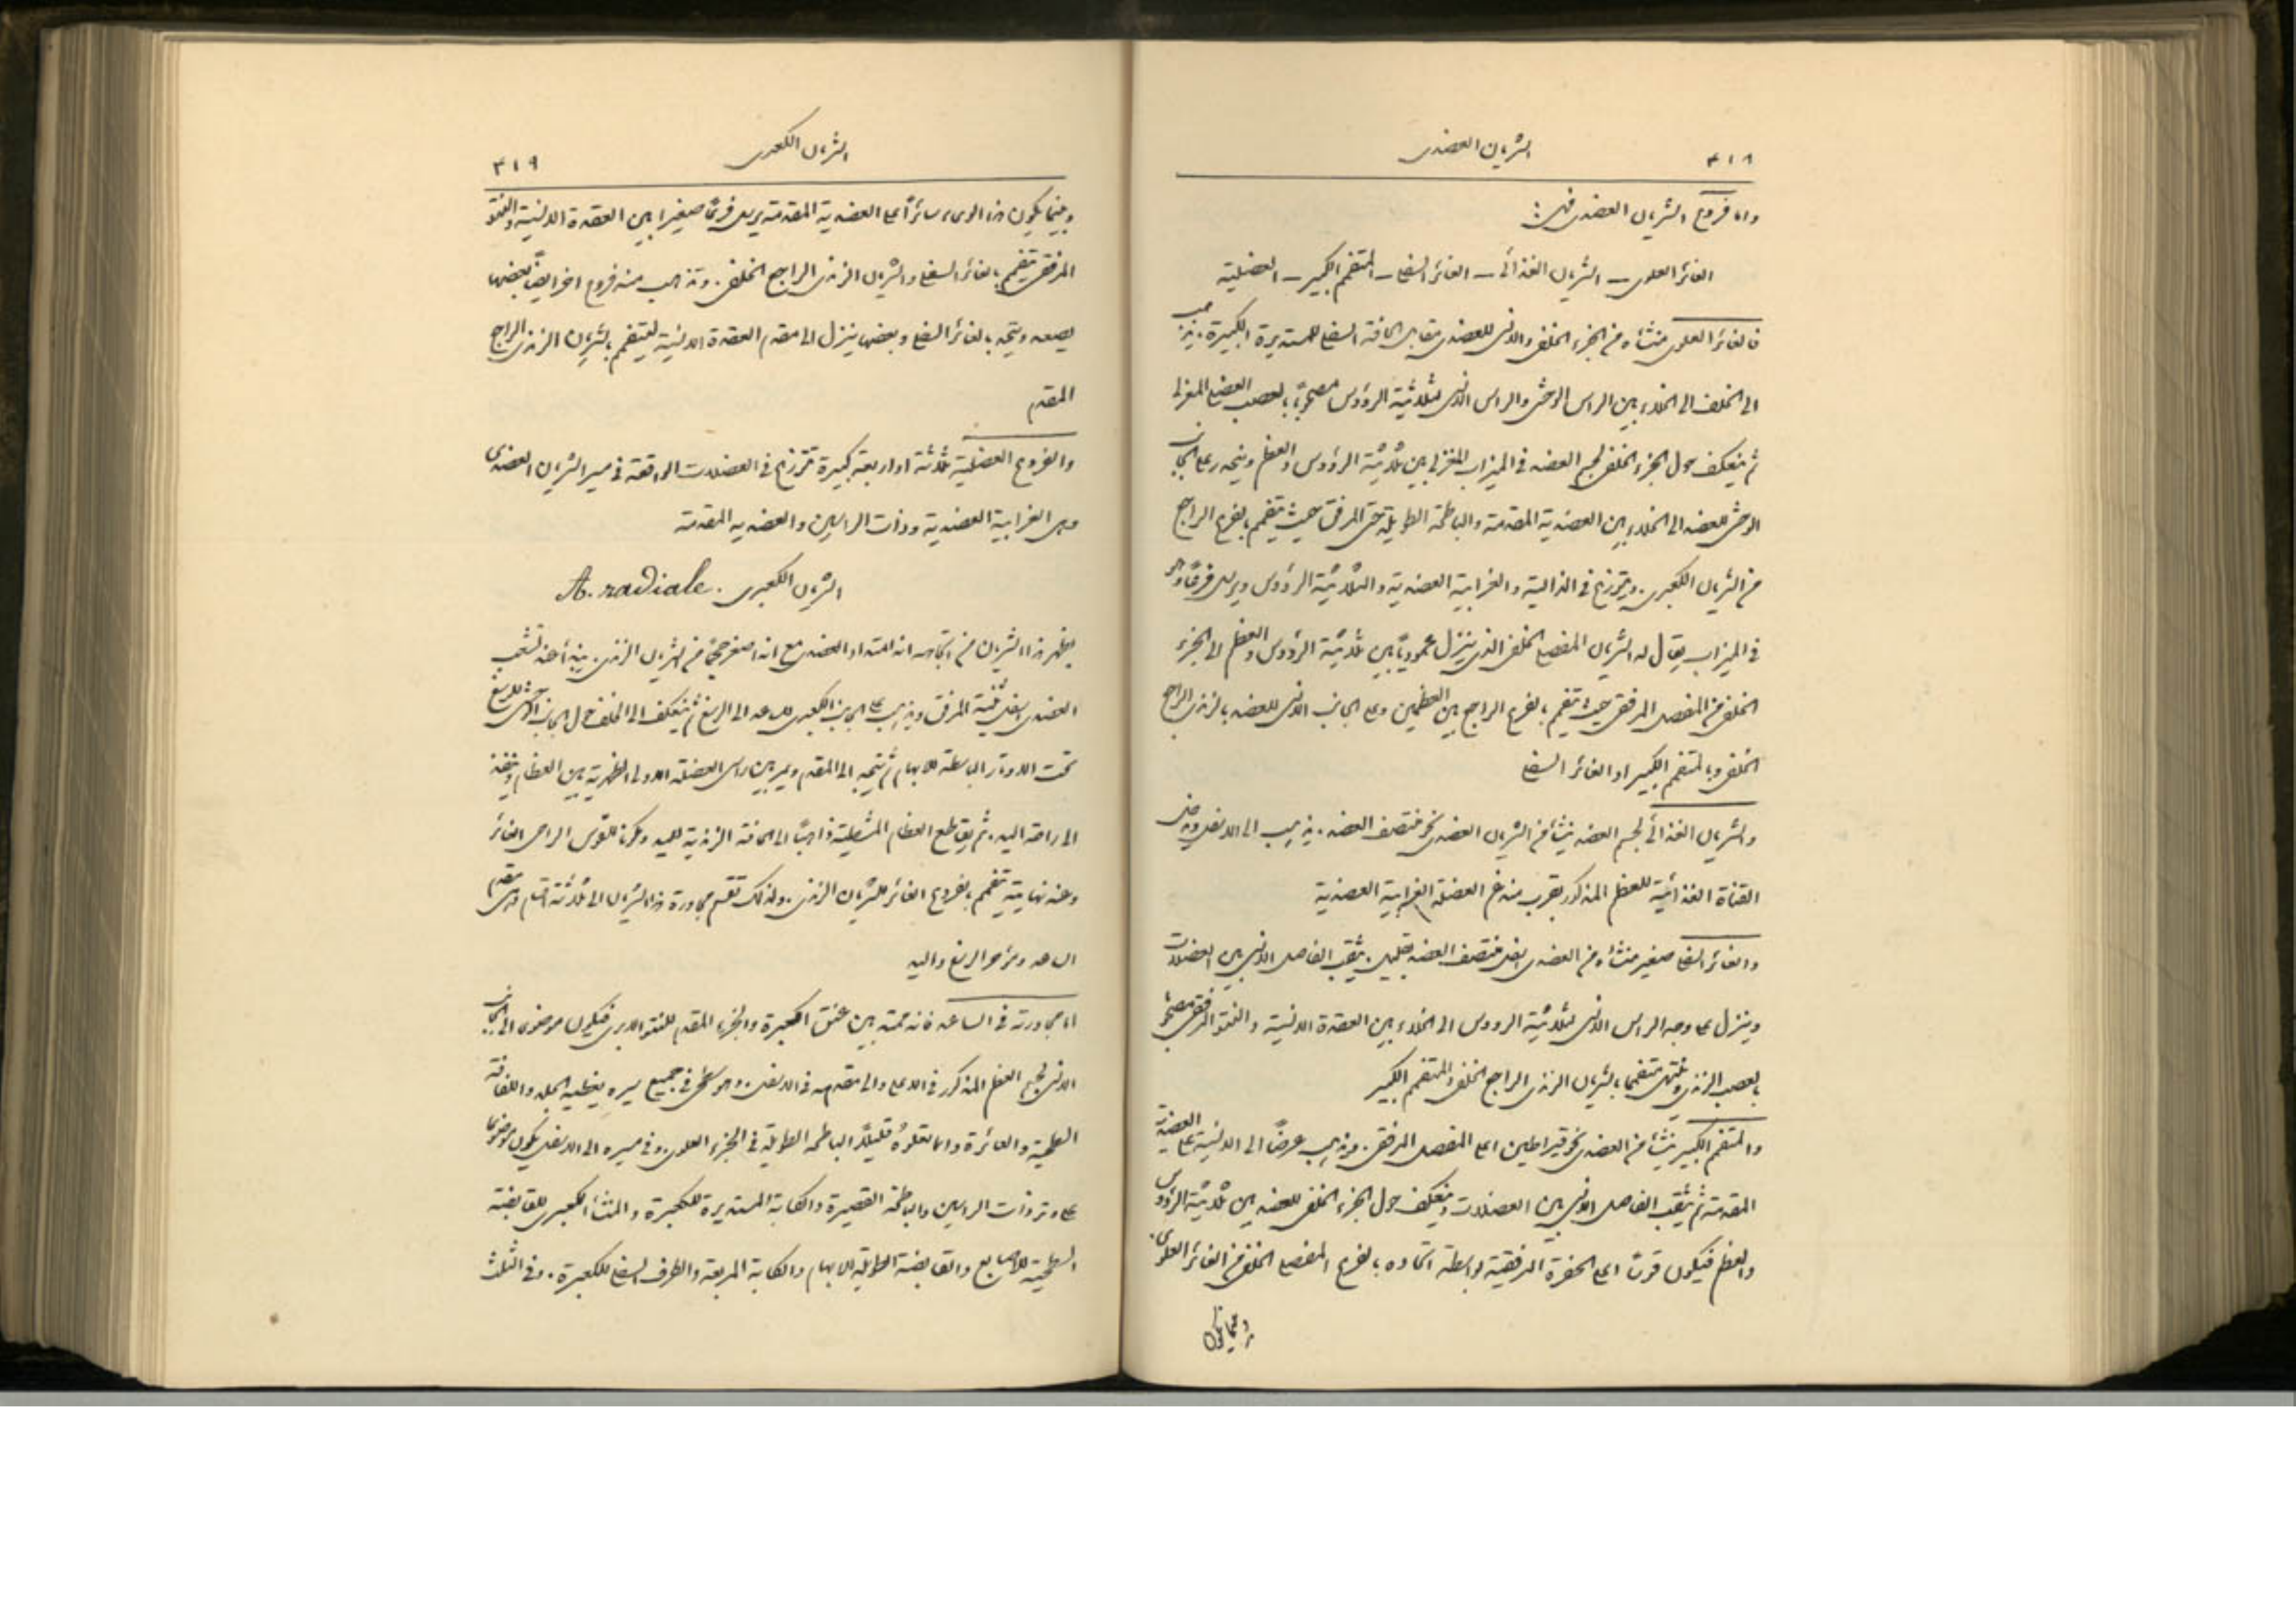 ٤١٨ الشريان العضدى
واما فروع الشريان العضدى فهى:
الغائر العلوى – الشريان الغذائى – الغائر السفلى – المتفمم الكبير – العضلية
فالغائر العلوى منشاه من الجزء الخلفى والانسى للعضدى مقابل الحافة السفلى للمستديرة الكبيرة. يذهب
الى الخلف الى الخلاء بين الراس الوحشى والراس الانسى لثلاثية الرؤوس مصحوباً بالعصب العضلى المغزلى
ثم ينعكف حول الجزء الخلفى لجسم العضد فى الميزاب المغزلى بين ثلاثية الرؤوس والعظم وينحدر على الجانب
الوحشى للعضد الى الخلاء بين العضدية المقدمة والباطحة الطويلة حتى المرفق حيث يتفمم بالفرع الراجع
من الشريان الكعبرى. ويتوزع فى الدالية والغرابية العضدية والثلاثية الرؤوس ويرسل فرعاً وهو
فى الميزاب يقال له الشريان المفصلى الخلفى الذى ينزل عمودياً بين ثلاثية الرؤوس والعظم الى الجزء
الخلفى من المفصل المرفقى حيث يتفمم بالفرع الراجع بين العظمين وعلى الجانب الانسى للعضد بالزندى الراجع
الخلفى وبالمتفمم الكبير او الغائر السفلى
والشريان الغذائى لجسم العضد ينشأ من الشريان العضدى نحو منتصف العضد. يذهب الى الاسفل ويدخل
القناة الغذائية للعظم المذكور بقرب مندغم العضلة الغرابية العضدية
والغائر السفلى صغير منشاه من العضدى اسفل منتصف العضد بقليل. يثقب الفاصل الانسى بين العضلات
وينزل على وجه الراس الانسى لثلاثية الرووس الى الخلاء بين العقدة الانسية والنتو المرفقى مصحوباً
بالعصب الزندى وينتهى متفمماً بالشريان الزندى الراجع الخلفى والمتفمم الكبير
والمتفمم الكبير ينشأ من العضدى نحو قيراطين اعلى المفصل المرفقى. ويذهب عرضاً الى الانسية على العضدية
المقدمة ثم يثقب الفاصل الانسى بين العضلات وينعكف حول الجزء الخلفى للعضد بين ثلاثية الرؤوس
والعظم فيكون قوساً اعلى الحفرة المرفقية بواسطة اتحاده بالفرع المفصلى الخلفى من الغائر العلوى.
وبينما يكون
الشريان الكعبرى ٤١٩
وبينما يكون هذا الوعاء سائراً على العضدية المقدمة يرسل فرعاً صغيرا بين العقدة الانسية والنتو
المرفقى يتفمم بالغائر السفلى والشريان الزندى الراجع الخلفى. وتذهب منه فروع اخر ايضاً بعضها
يصعد ويتحد بالغائر السفلى وبعضها ينزل الى مقدم العقدة الانسية ليتفمم بالشريان الزندى الراجع
المقدم
والفروع العضلية ثلاثة او اربعة كبيرة تتوزع فى العضلات الواقعة فى مسير الشريان العضدى
وهى الغرابية العضدية وذات الراسين والعضديه المقدمة
الشريان الكعبرى A. radiale.
يظهر هذا الشريان من اتجاهه انه امتداد العضدى مع انه اصغر حجماً من الشريان الزندى. يبتدأ عند تشعب
العضدى اسفل ثنية المرفق ويذهب على الجانب الكعبرى للساعد الى الرسغ ثم ينعكف الى الخلف حول الجانب الوحشى للرسغ
تحت الاوتار الباسطة للابهام ثم يتجه الى المقدم ويمر بين راسى العضلة الاولى الظهرية بين العظام وينفذ
الى راحة اليد. ثم يقاطع العظام المشطية ذاهباً الى الحافة الزندية لليد ومكوناً للقوس الراحى الغائر
وعند نهايته يتفمم بفروع الغائر للشريان الزندى. ولذلك تقسم مجاورة هذا الشريان الى ثلاثة اقسام وهى مقدم
الساعد ومؤخر الرسغ واليد
اما مجاورته فى الساعد فانه ممتد بين عنق الكعبرة والجزء المقدم للنتو الابرى فيكون موضوعاً الى الجانب
الانسى لجسم العظم المذكور فى الاعلى والى مقدمه فى الاسفل. وهو سطحى فى جميع سيره يغطيه الجلد واللفافة
السطحية والغائرة وانما تعلوهُ قليلاً الباطحه الطويلة فى الجزء العلوى. وفى مسيره الى الاسفل يكون موضوعاً
على وتر ذات الراسين والباطحة القصيرة والكابة المستديرة للكعبرة والمنشأ الكعبرى للقابضة
السطحية للاصابع والقابضة الطويلة للابهام والكابة المربعة والطرف السفلى للكعبرة. وفى الثلث